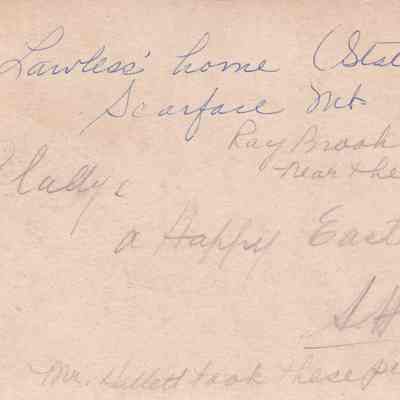 Lawless' home (Stat
Scarface Mt.
Ray Brook
near the
Gladys
a Happy East
S H
Mr. Hallett took these pi